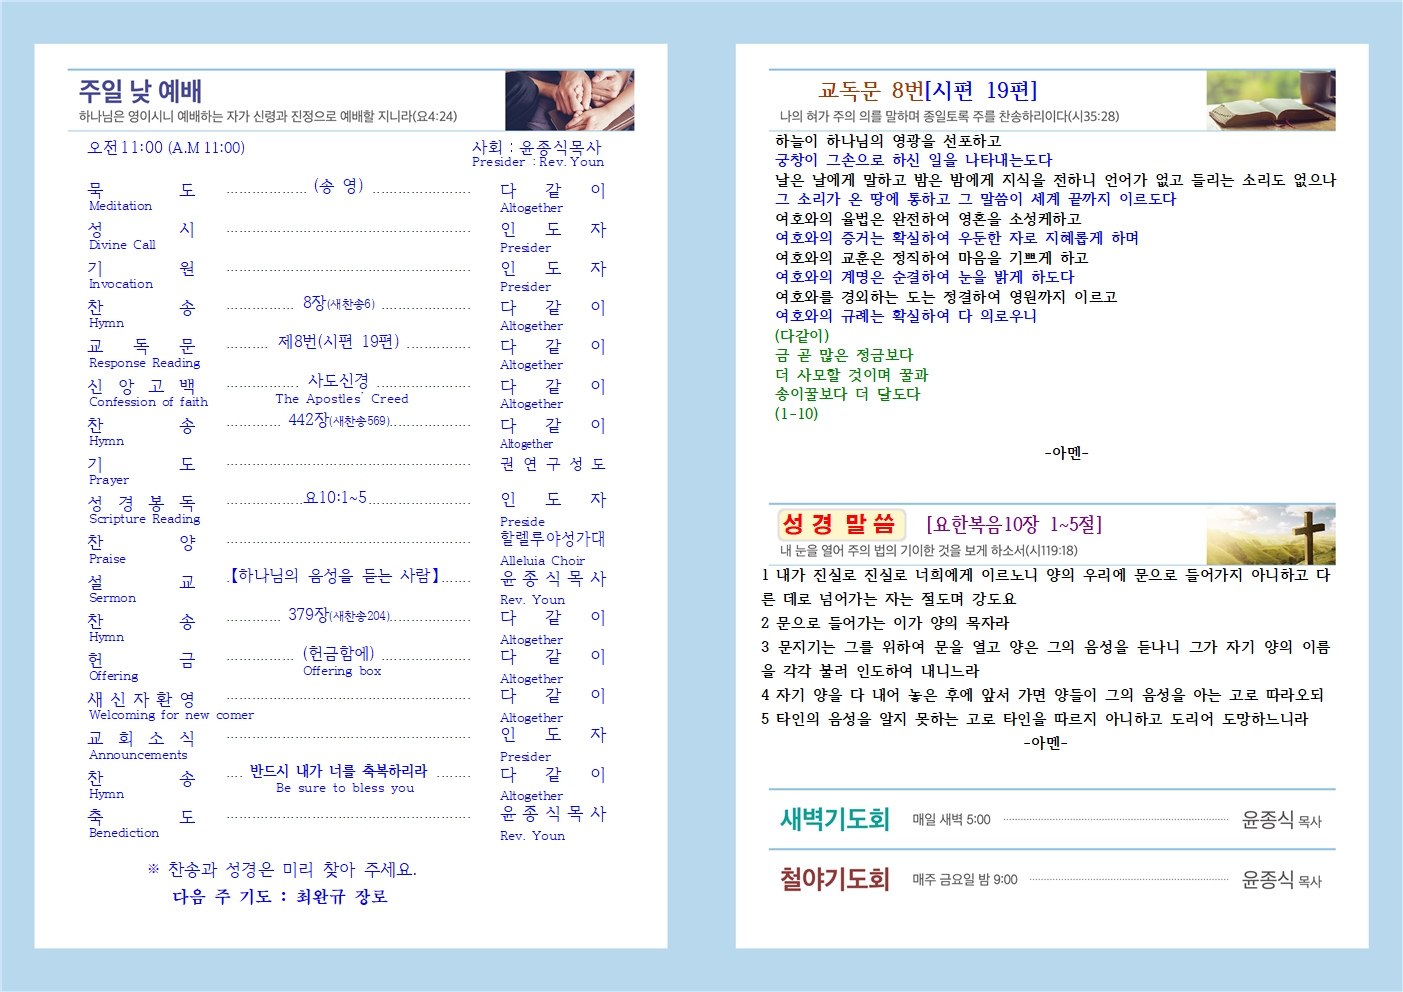 주일 낮 예배
하나님은 영이시니 예배하는 자가 신령과 진정으로 예배할 지니라(요4:24)
오전11:00 (A.M 11:00) 사회 : 윤종식목사
Presider : Rev. Youn
묵 도 (송 영) 다 같 이
Meditation Altogether
성 시 인 도 자
Divine Call Presider
기 원 인 도 자
Invocation Presider
찬 송 8장(새찬송6) 다 같 이
Hymn Altogether
교 독 문 제8번(시편 19편) 다 같 이
Response Reading Altogether
신 앙 고 백 사도신경 다 같 이
Confession of faith The Apostles' Creed Altogether
찬 송 442장(새찬송569) 다 같 이
Hymn Altogether
기 도 권 연 구 성 도
Prayer
성 경 봉 독 요10:1~5 인 도 자
Scripture Reading Preside
찬 양 할렐루야성가대
Praise Alleluia Choir
설 교 【하나님의 음성을 듣는 사람】 윤 종 식 목 사
Sermon Rev. Youn
찬 송 379장(새찬송204) 다 같 이
Hymn Altogether
헌 금 (헌금함에) 다 같 이
Offering Offering box Altogether
새 신 자 환 영 다 같 이
Welcoming for new comer Altogether
교 회 소 식 인 도 자
Announcements Presider
찬 송 반드시 내가 너를 축복하리라 다 같 이
Hymn Be sure to bless you Altogether
축 도 윤 종 식 목 사
Benediction Rev. Youn
※ 찬송과 성경은 미리 찾아 주세요.
다음 주 기도 : 최완규 장로
교독문 8번[시편 19편]
나의 혀가 주의 의를 말하며 종일토록 주를 찬송하리이다(시35:28)
하늘이 하나님의 영광을 선포하고
궁창이 그손으로 하신 일을 나타내는도다
날은 날에게 말하고 밤은 밤에게 지식을 전하니 언어가 없고 들리는 소리도 없으나
그 소리가 온 땅에 통하고 그 말씀이 세계 끝까지 이르도다
여호와의 율법은 완전하여 영혼을 소성케하고
여호와의 증거는 확실하여 우둔한 자로 지혜롭게 하며
여호와의 교훈은 정직하여 마음을 기쁘게 하고
여호와의 계명은 순결하여 눈을 밝게 하도다
여호와를 경외하는 도는 정결하여 영원까지 이르고
여호와의 규례는 확실하여 다 의로우니
(다같이)
금 곧 많은 정금보다
더 사모할 것이며 꿀과
송이꿀보다 더 달도다
(1-10)
-아멘-
성 경 말 씀 [요한복음10장 1~5절]
내 눈을 열어 주의 법의 기이한 것을 보게 하소서(시119:18)
1 내가 진실로 진실로 너희에게 이르노니 양의 우리에 문으로 들어가지 아니하고 다
른 데로 넘어가는 자는 절도며 강도요
2 문으로 들어가는 이가 양의 목자라
3 문지기는 그를 위하여 문을 열고 양은 그의 음성을 듣나니 그가 자기 양의 이름
을 각각 불러 인도하여 내니느라
4 자기 양을 다 내어 놓은 후에 앞서 가면 양들이 그의 음성을 아는 고로 따라오되
5 타인의 음성을 알지 못하는 고로 타인을 따르지 아니하고 도리어 도망하느니라
-아멘-
새벽기도회 매일 새벽 5:00 윤종식 목사
철야기도회 매주 금요일 밤 9:00 윤종식 목사